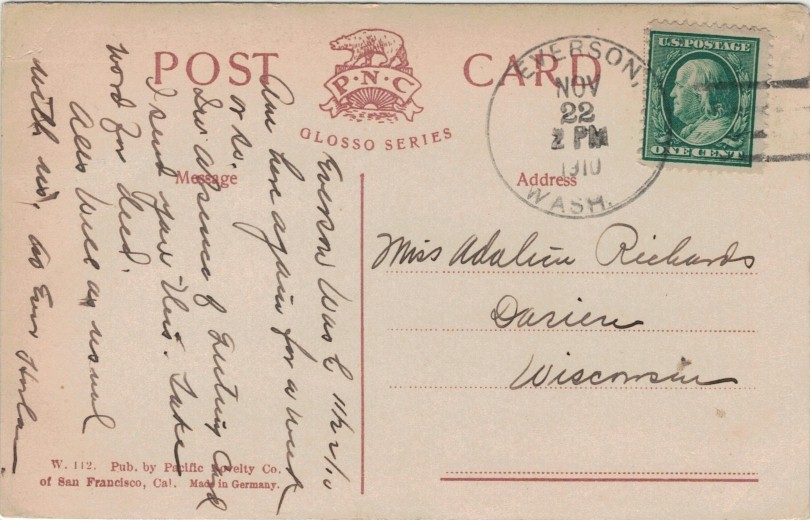 POST CARD
P·N·C
GLOSSO SERIES
Message
Address
EVERSON,
NOV
22
2 PM
1910
WASH.
U.S. POSTAGE
ONE CENT
Miss Adaline Richards
Darien
Wisconsin
Everson Wash 11/22/10
Am here again for a week
or so.
In absence of Visiting Card
I send you this. Take
word for deed.
All's Well as usual
with us, as Ever
W. 112. Pub. by Pacific Novelty Co.
of San Francisco, Cal. Made in Germany.